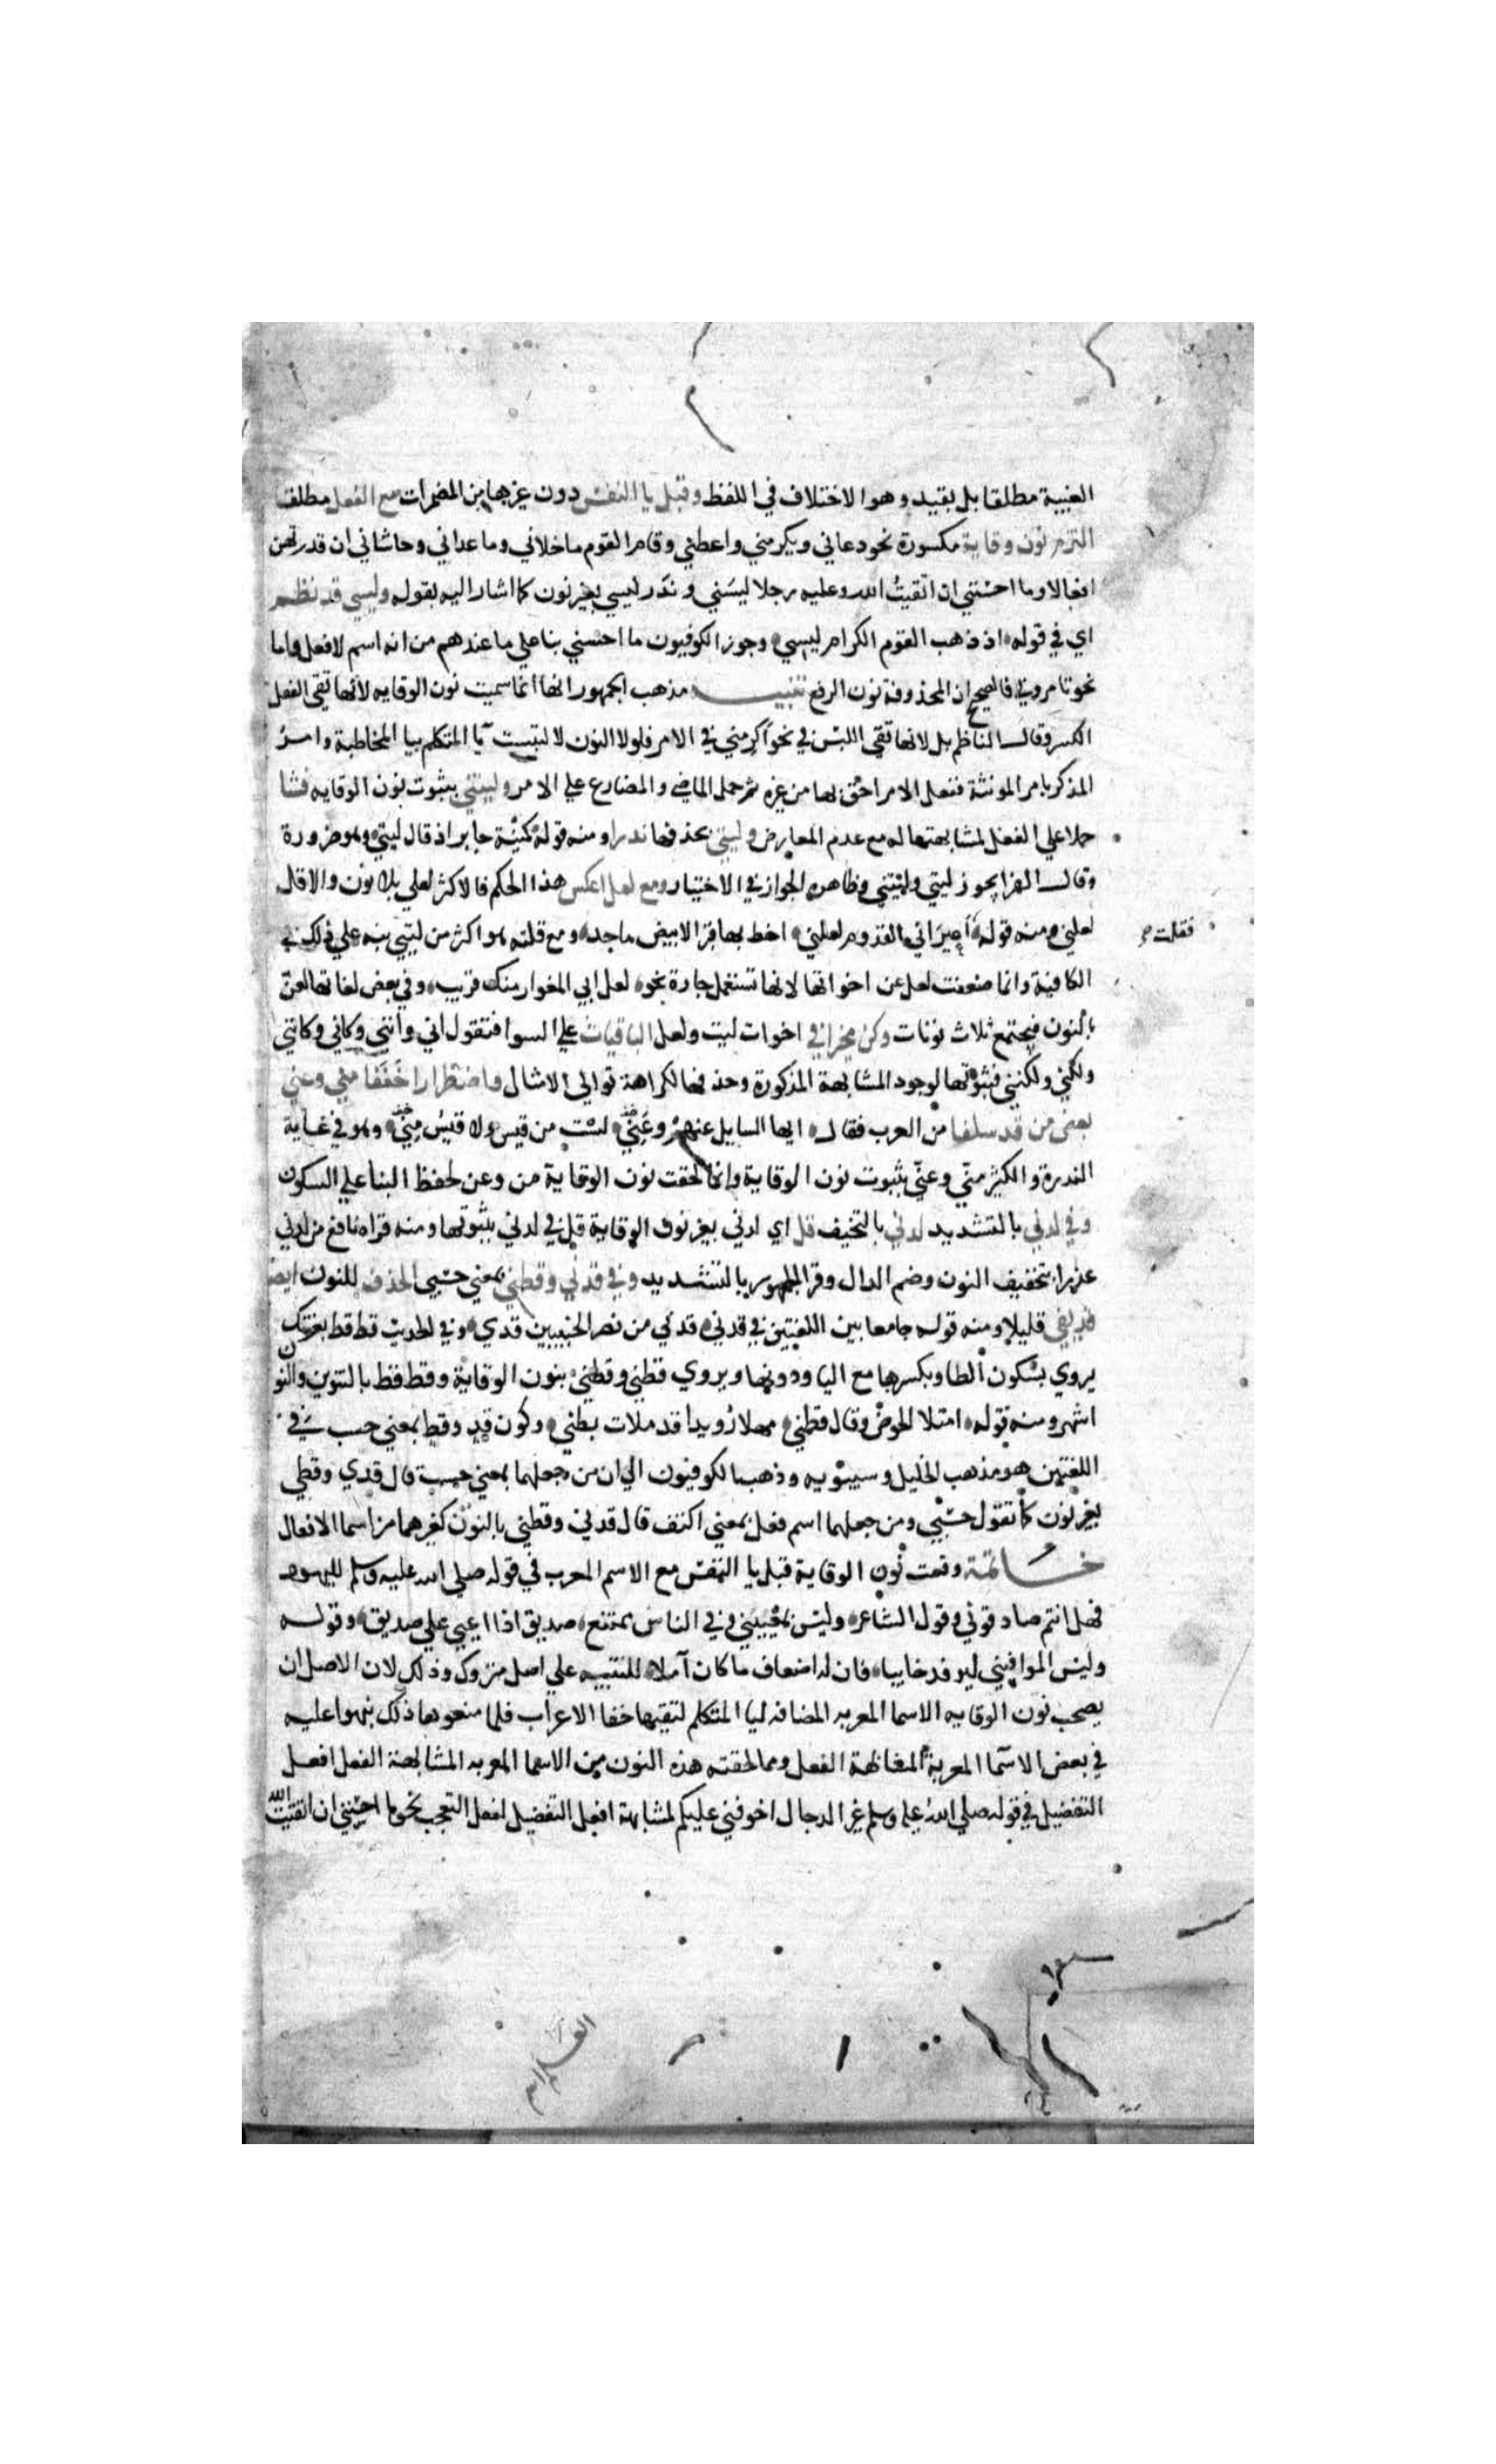 الغيبة مطلقا بل بقيد وهو الاختلاف في اللفظ وقبل يا النفس دون غيرها من المضمرات مع الفعل مطلقا
التزم نون وقاية مكسورة نحو دعاني ويكرمني واعطني وقام القوم ماخلاني وما عداني وحاشاني ان قدرتهن
افعالا وما احسنني ان اتقيتُ الله وعليه رجلا ليسَني وندَر ليسي بغير نون كما اشار اليه بقوله وليسي قد نظم
اي في قوله اذ ذهب القوم الكرام ليسي وجوز الكوفيون ما احسني بنا علي ما عندهم من انه اسم لا فعل واما
نحو تامروني فالصحيح ان المحذوفة نون الرفع تنبيه مذهب الجمهور انها انما سميت نون الوقايه لانها تقي الفعل
الكسر وقال الناظم بل لانها تقي اللبس في نحو اَكرِمني في الامر فلولا النون لالتبست يا المتكلم بيا المخاطبة وامرُ
المذكر بامر المونثة ففعل الامر احق بها من غيره ثم حمل الماضي والمضارع علي الامر وليتني بثبوت نون الوقايه فشا
حملا علي الفعل لمشابهتها له مع عدم المعارض وليتي بحذفها ندرا ومنه قوله كمُنْية جابر اذ قال ليتي وهو ضرورة
وقال الفرا يجوز ليتي وليتني وظاهره الجواز في الاختيار ومع لعل اعكس هذا الحكم فالاكثر لعلي بلا نون والاقل
لعلني ومنه قوله اَعيرَاني القدوم لعلني اخط بها قبرا لابيض ماجد ومع قلته هو اكثر من ليتي نبه علي ذلك في
فقلت
الكافية وانما ضعفت لعل عن اخواتها لانها تستعمل جارة نحو لعل ابي المغوار منك قريب وفي بعض لغاتها لعنّ
بالنون فيجتمع ثلاث نونات وكن مخيرا في اخوات ليت ولعل الباقيات علي السوا فتقول اني وانني وكاني وكانني
ولكني ولكنني فثبوتها لوجود المشابهة المذكورة وحذفها لكراهة توالي الامثال واضطرارا خففا مني وعني
بعض من قد سلفا من العرب فقال ايها السايل عنهم وعَنِي لست من قيس ولا قيسُ مِنِي وهو في غاية
الندرة والكثير منّي وعنّي بثبوت نون الوقاية وانما لحقت نون الوقاية من وعن لحفظ البنا علي السكون
وفي لدنّي بالتشديد لدني بالتخفيف قل اي لدني بغير نون الوقاية قل في لدني بثبوتها ومنه قراة نافع من لدني
عذرا بتخفيف النون وضم الدال وقرا الجمهور بالتشديد وفي قدني وقطني بمعني حسبي الحذف للنون ايضا
قد يفي قليلا ومنه قوله جامعا بين اللغتين في قدني قدني من نصر الخبيبين قدي وفي الحديث قط قط بعزتك
يروي بسكون الطا وبكسرها مع اليا ودونها ويروي قطني وقطني بنون الوقاية وقط قط بالتنوين والنون
اشهر ومنه قوله امتلا الحوض وقال قطني مهلا رُويدا قد ملات بطني وكون قد وقط بمعني حسب في
اللغتين هو مذهب الخليل وسيبويه وذهب الكوفيون الي ان من جعلهما بمعني حسب قال قدي وقطي
بغير نون كما تقول حسبي ومن جعلهما اسم فعل بمعني اكتف قال قدني وقطني بالنون كغيرهما من اسما الافعال
خاتمة وقعت نون الوقاية قبل يا النفس مع الاسم المعرب في قوله صلي الله عليه وسلم لليهود
فهل انتم صادقوني وقول الشاعر وليس بمُعْيِيني وفي الناس ممتنع صديق اذا اعيي علي صديق وقوله
وليس الموافيني ليرفد خايبا فان له اضعاف ما كان آملا للتنبيه علي اصل متروك وذلك لان الاصل ان
يصحب نون الوقايه الاسما المعربه المضافه ليا المتكلم لتقيها خفا الاعراب فلما منعوها ذلك نبهوا عليه
في بعض الاسما المعربة المشابهة الفعل ومما لحقته هذه النون من الاسما المعربه المشابهة الفعل افعل
التفضيل في قوله صلي الله عليه وسلم غير الدجال اخوفني عليكم لمشابهة افعل التفضيل لفعل التعجب نحو ما احسنني ان اتقيت الله